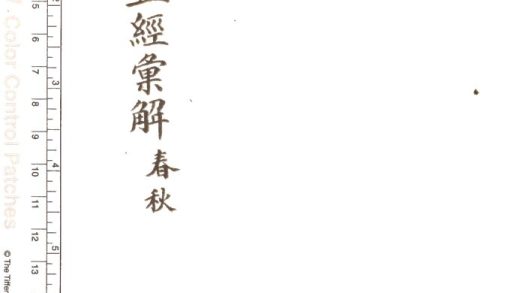 經彙解 春秋
Color Control Patches
5 6 7 8 9 10 11 12 13
3 4 5
© The Tiffen